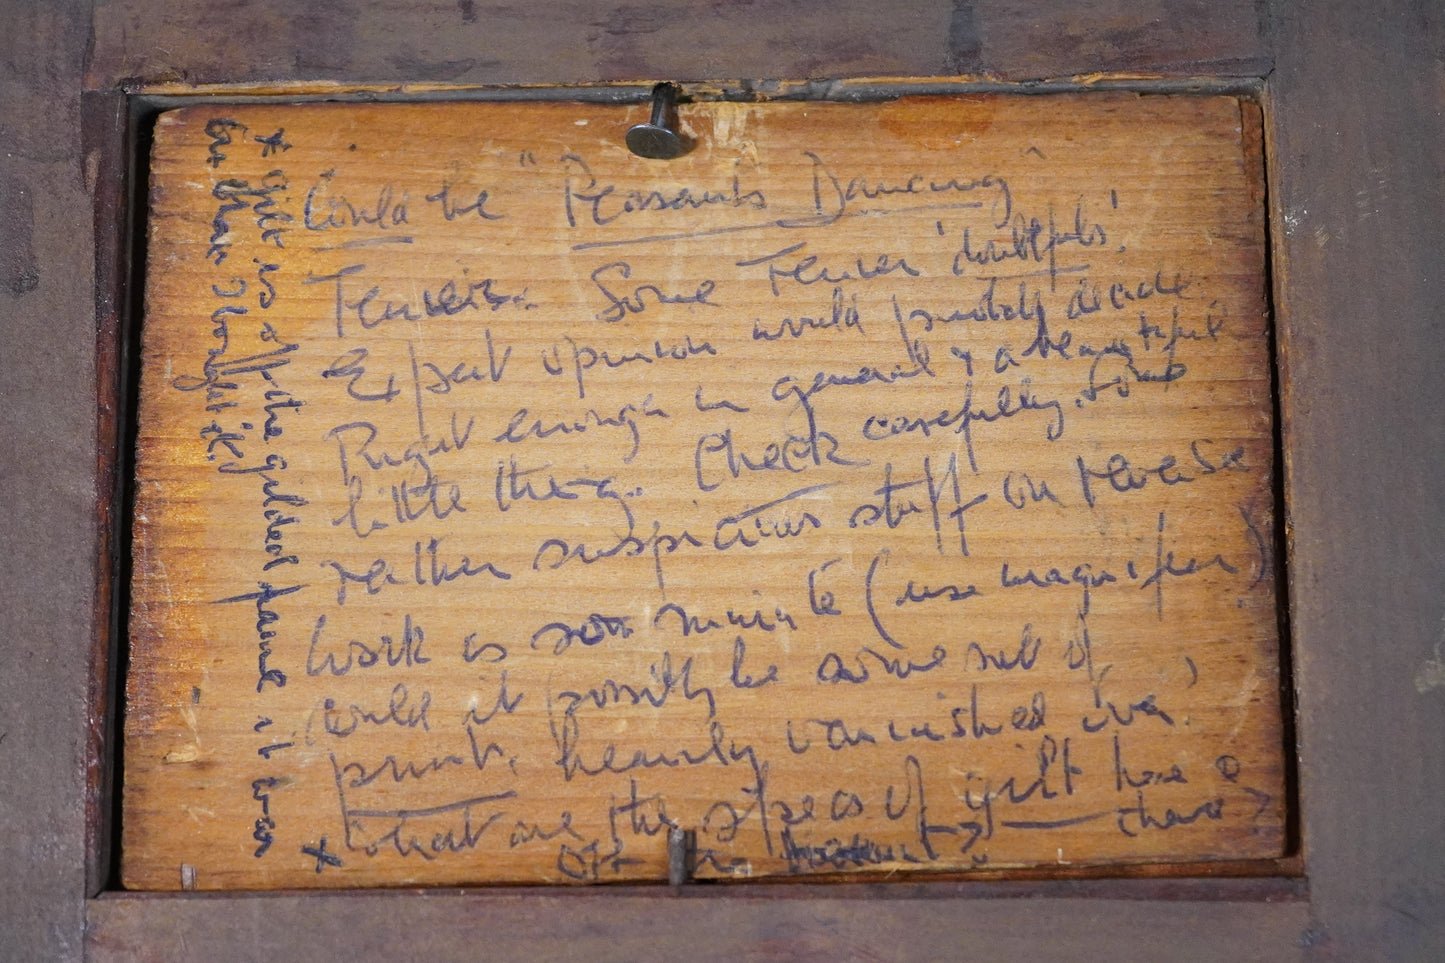 Could be "Peasants Dancing"
Teniers. Some Teniers 'doubtfuls'.
Expert opinion would probably decide.
Right enough in general & a beautiful
little thing. Check carefully. Some
rather suspicious stuff on reverse
Work is so minute (use magnifier)
could it possibly be some sort of
print, heavily varnished over?
* What are the specs of gilt here &
there?
on the
* gilt is off the gilded frame it was
in when I bought it.